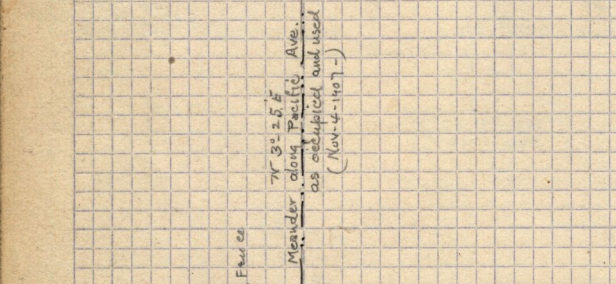 Fence
N 3°-25' E
Meander along Pacific Ave.
as occupied and used
(Nov-4-1907-)